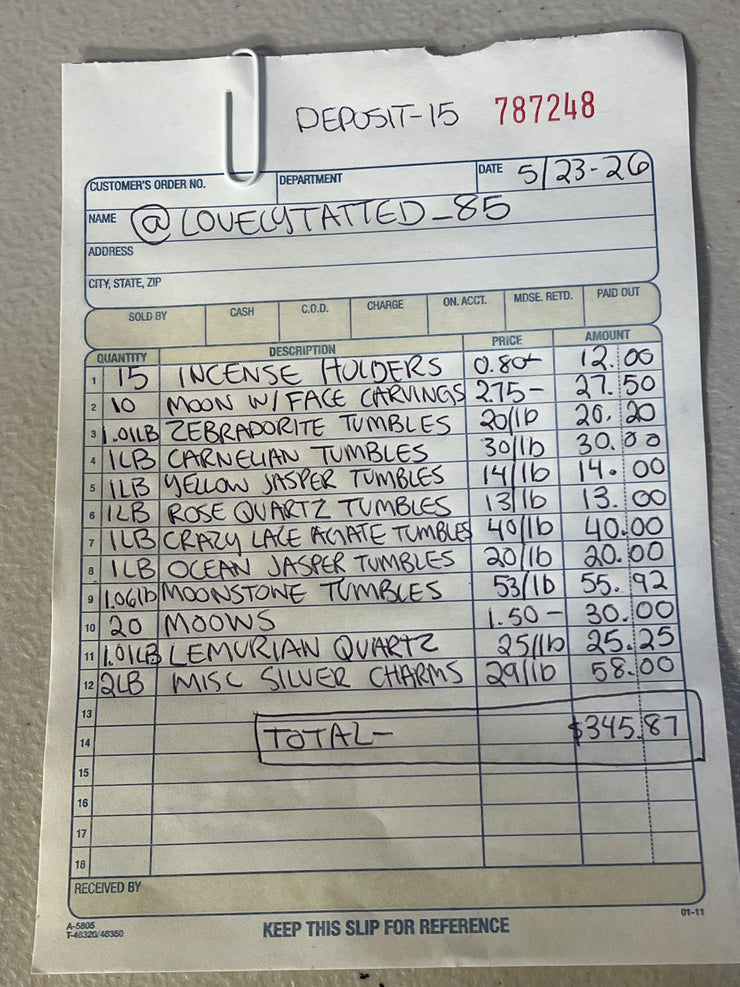 DEPOSIT-15 787248
CUSTOMER'S ORDER NO. DEPARTMENT DATE 5/23-26
NAME @LOVELYTATTED_85
ADDRESS
CITY, STATE, ZIP
SOLD BY CASH C.O.D. CHARGE ON. ACCT. MDSE. RETD. PAID OUT
QUANTITY DESCRIPTION PRICE AMOUNT
1 15 INCENSE HOLDERS 0.80- 12.00
2 10 MOON W/ FACE CARVINGS 2.75- 27.50
3 1.01LB ZEBRADORITE TUMBLES 20/lb 20.20
4 1LB CARNELIAN TUMBLES 30/lb 30.00
5 1LB YELLOW JASPER TUMBLES 14/lb 14.00
6 1LB ROSE QUARTZ TUMBLES 13/lb 13.00
7 1LB CRAZY LACE AGATE TUMBLES 40/lb 40.00
8 1LB OCEAN JASPER TUMBLES 20/lb 20.00
9 1.06lb MOONSTONE TUMBLES 53/lb 55.92
10 20 MOONS 1.50- 30.00
11 1.01LB LEMURIAN QUARTZ 25/lb 25.25
12 2LB MISC SILVER CHARMS 29/lb 58.00
13
14 TOTAL- $345.87
15
16
17
18
RECEIVED BY
A-5805
T-46320/46350
KEEP THIS SLIP FOR REFERENCE
01-11